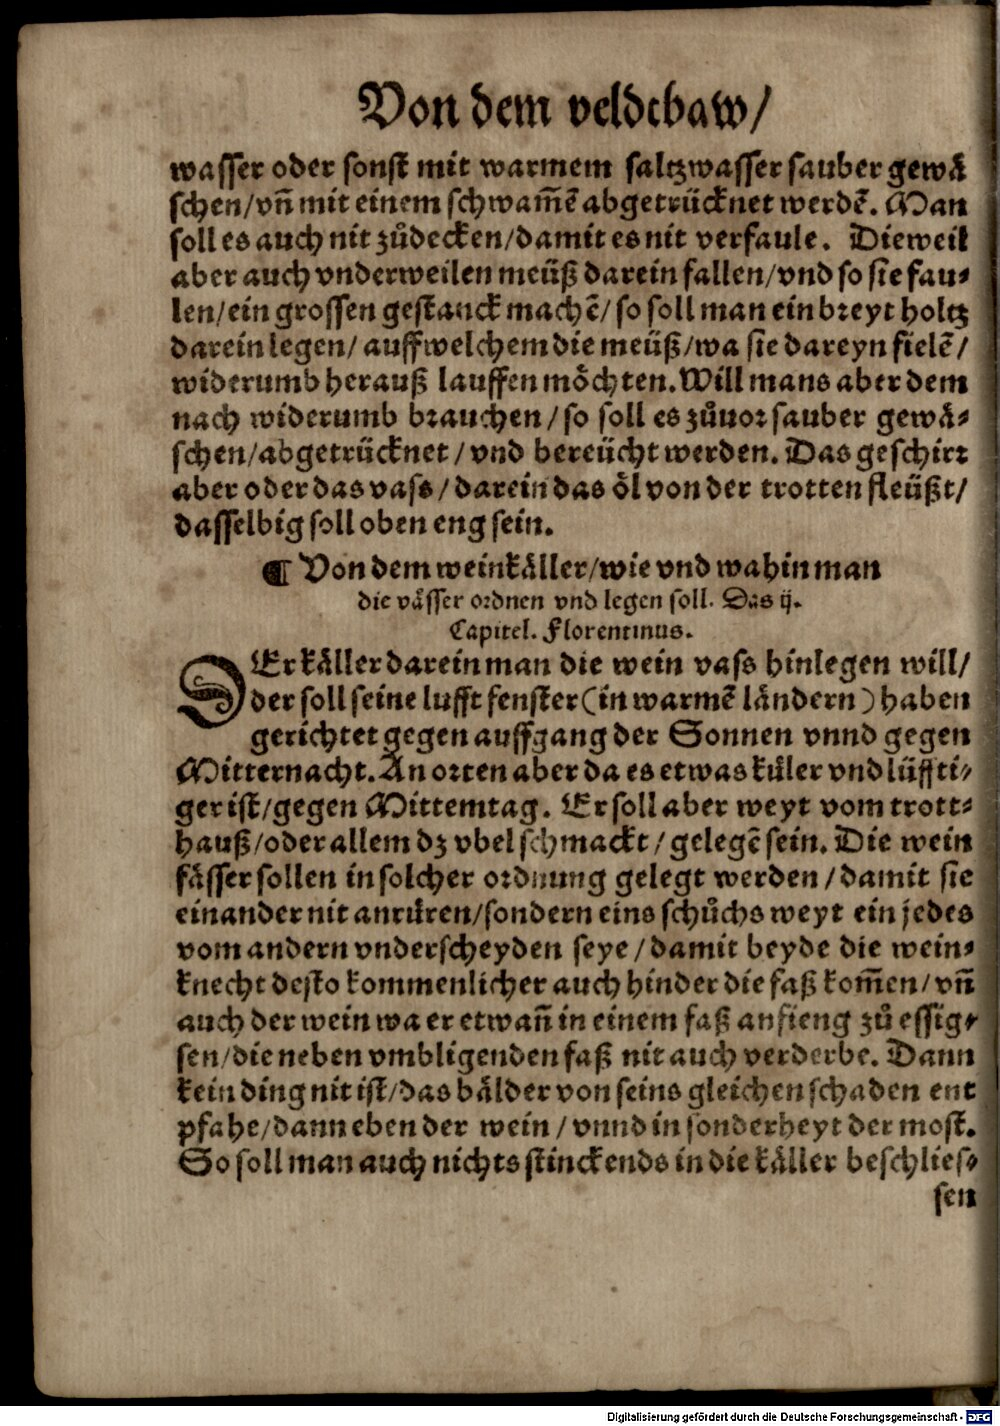 Von dem veldtbaw/
wasser oder sonst mit warmem saltzwasser sauber gewä
schen/vñ mit einem schwam̃ẽ abgetrücknet werdẽ. Man
soll es auch nit zůdecken/damit es nit verfaule. Dieweil
aber auch vnderweilen meüß darein fallen/vnd so sie fau⸗
len/ein grossen gestanck machẽ/so soll man ein breyt holtz
darein legen/auff welchem die meüß/wa sie dareyn fielẽ/
widerumb herauß lauffen möchten. Will mans aber dem
nach widerumb brauchen/so soll es zůuor sauber gewä⸗
schen/abgetrücknet/vnd bereücht werden. Das geschirr
aber oder das vass/darein das öl von der trotten fleüßt/
dasselbig soll oben eng sein.
¶ Von dem weinkäller/wie vnd wahin man
die vässer ordnen vnd legen soll. Das ij.
Capitel. Florentinus.
DEr käller darein man die wein vass hinlegen will/
der soll seine lufft fenster (in warmẽ ländern) haben
gerichtet gegen auffgang der Sonnen vnnd gegen
Mitternacht. An orten aber da es etwas kůler vnd lüffti⸗
ger ist/gegen Mittemtag. Er soll aber weyt vom trott⸗
hauß/oder allem dz vbel schmackt/gelegẽ sein. Die wein
fässer sollen in solcher ordnung gelegt werden/damit sie
einander nit anrůren/sondern eins schůchs weyt ein jedes
vom andern vnderscheyden seye/damit beyde die wein⸗
knecht desto kommenlicher auch hinder die faß kom̃en/vñ
auch der wein wa er etwañ in einem faß anfieng zů essig⸗
sen/die neben vmbligenden faß nit auch verderbe. Dann
kein ding nit ist/das bälder von seins gleichen schaden ent
pfahe/dann eben der wein/vnnd in sonderheyt der most.
So soll man auch nichts stinckends in die käller beschlies⸗
sen
Digitalisierung gefördert durch die Deutsche Forschungsgemeinschaft - DFG